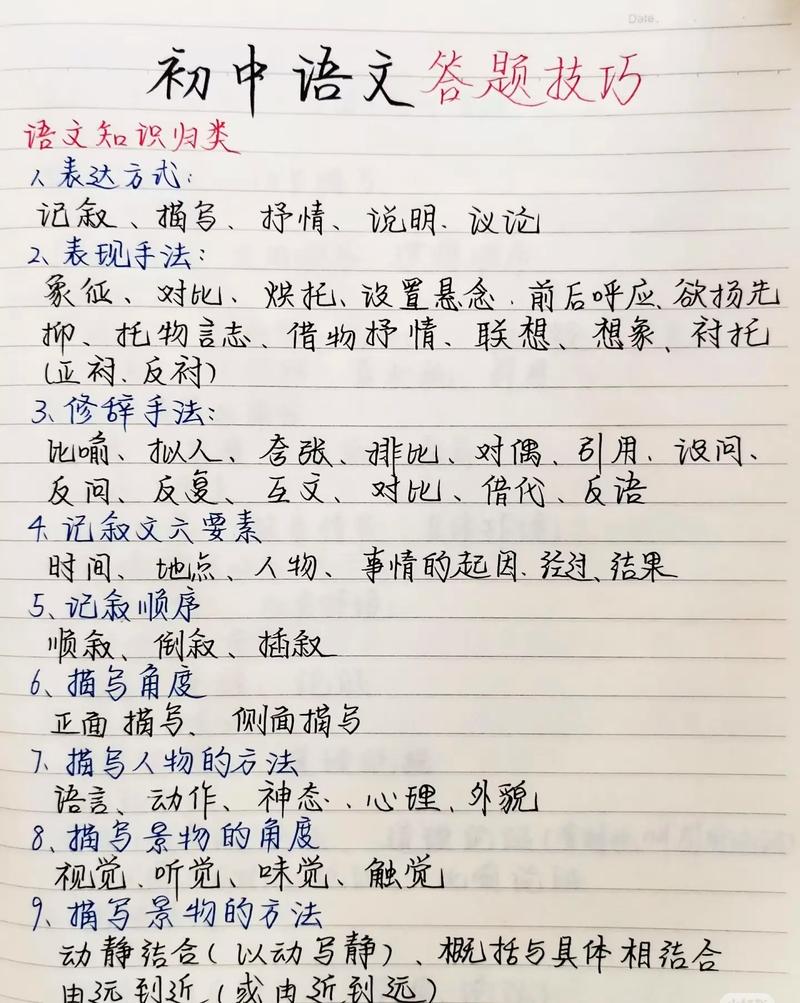 Date.
初中语文答题技巧
语文知识归类
1、表达方式:
记叙、描写、抒情、说明、议论
2、表现手法:
象征、对比、烘托、设置悬念、前后呼应、欲扬先
抑、托物言志、借物抒情、联想、想象、衬托
(正衬、反衬)
3、修辞手法:
比喻、拟人、夸张、排比、对偶、引用、设问、
反问、反复、互文、对比、借代、反语
4、记叙文六要素
时间、地点、人物、事情的起因、经过、结果
5、记叙顺序
顺叙、倒叙、插叙
6、描写角度
正面描写、侧面描写
7、描写人物的方法
语言、动作、神态、心理、外貌
8、描写景物的角度
视觉、听觉、味觉、触觉
9、描写景物的方法
动静结合(以动写静)、概括与具体相结合
由远到近(或由近到远)